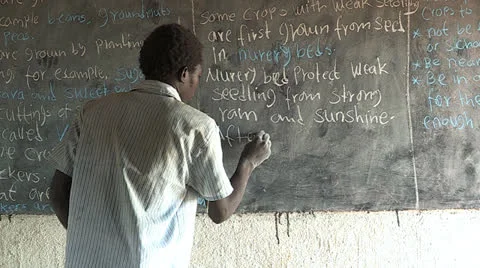 example beans, groundnuts
Peas.
are grown by planting
ing for example, sug
ava and sweet
cuttings of
called
are
kers.
at are
kers are
some crops with weak seedling
are first grown from seed
in nursery beds.
Nursery bed Protect weak
seedling from strong
rain and sunshine.
Afte
Crops to
* not be
or
* Be near
* Be in a
for the
enough